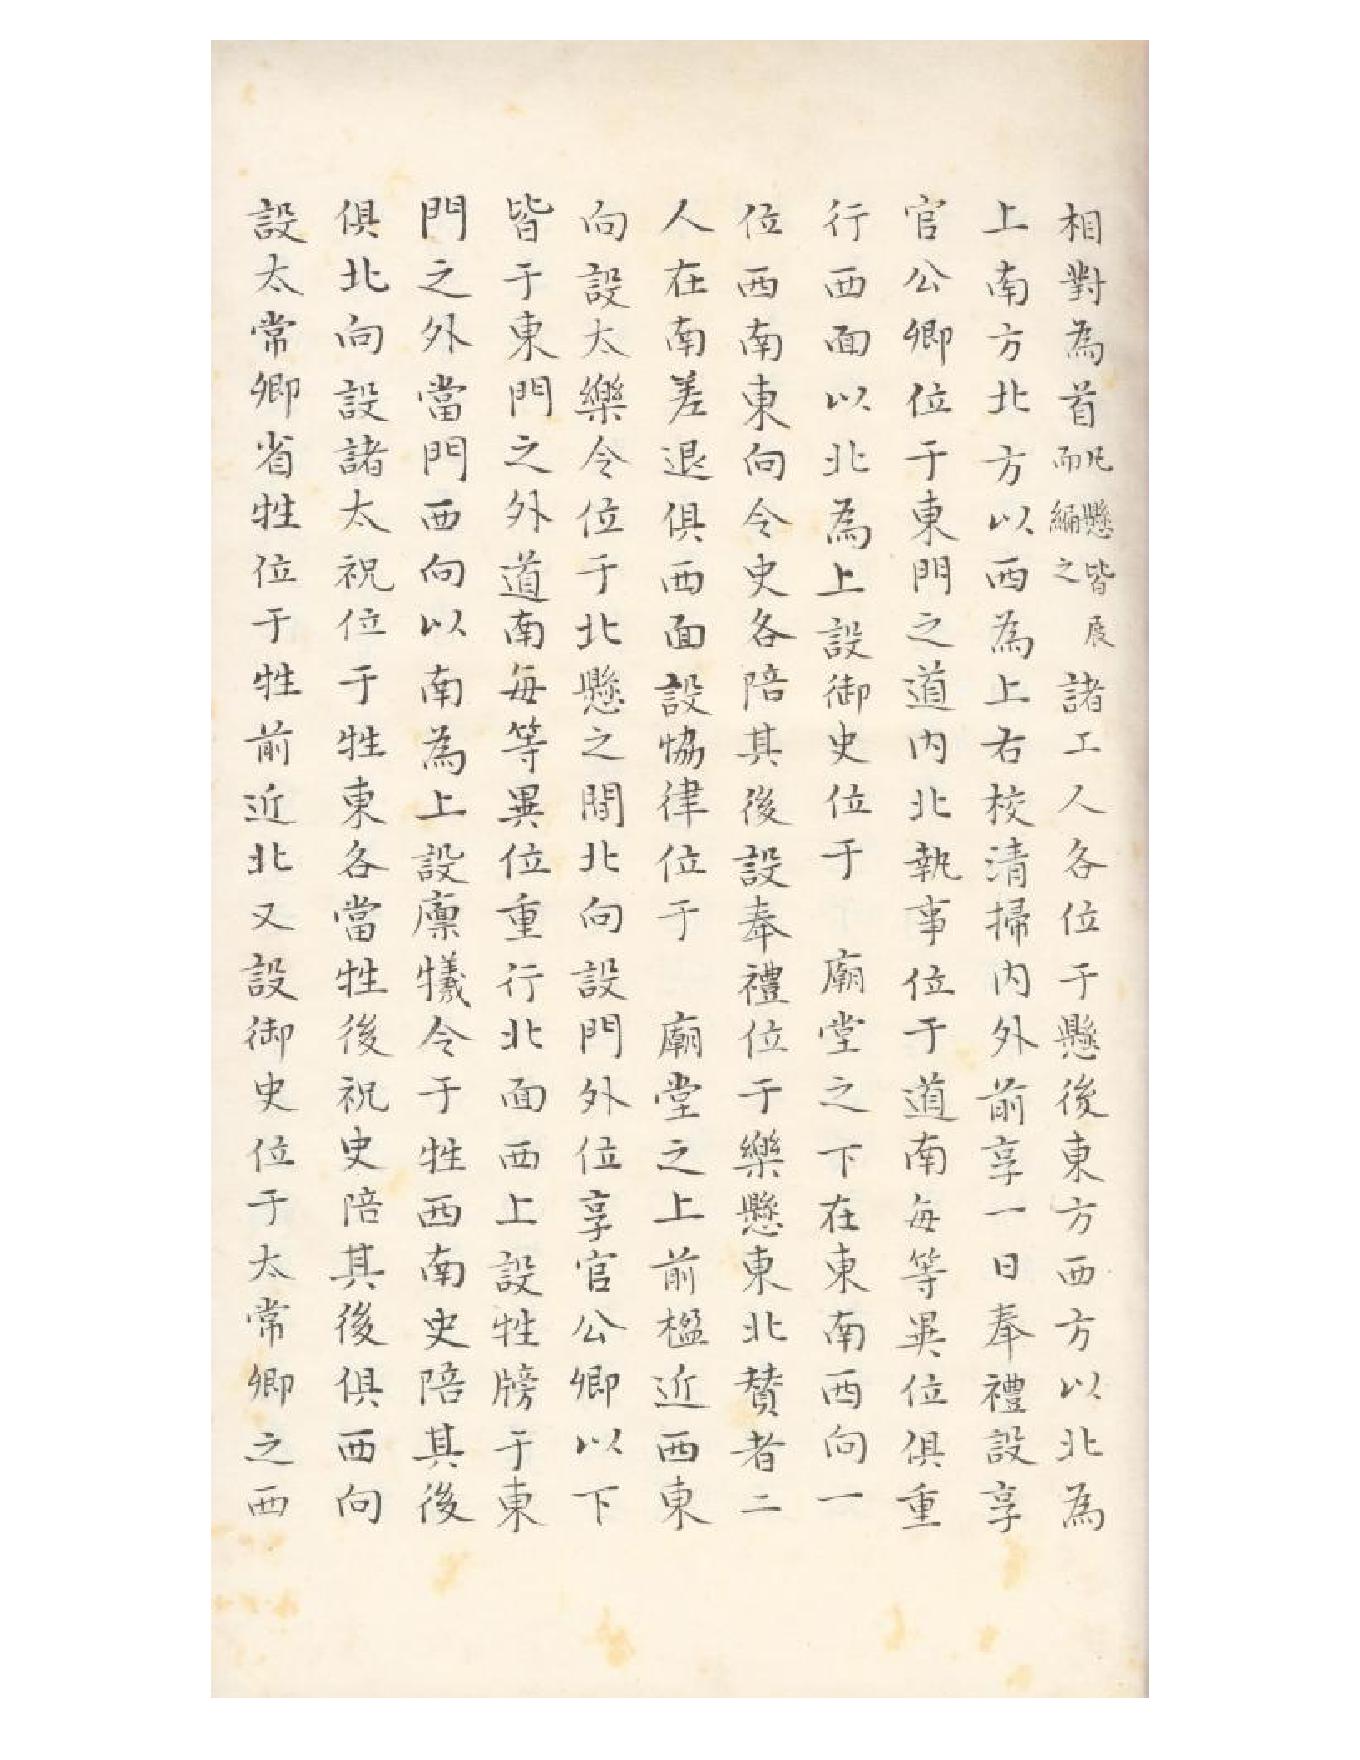 相對為首凡懸皆展而編之諸工人各位于懸後東方西方以北為
上南方北方以西為上右校清掃内外前享一日奉禮設享
官公卿位于東門之道内北執事位于道南每等異位俱重
行西面以北為上設御史位于廟堂之下在東南西向一
位西南東向令史各陪其後設奉禮位于樂懸東北贊者二
人在南差退俱西面設恊律位于廟堂之上前楹近西東
向設太樂令位于北懸之間北向設門外位享官公卿以下
皆于東門之外道南每等異位重行北面西上設牲牓于東
門之外當門西向以南為上設廩犧令于牲西南史陪其後
俱北向設諸太祝位于牲東各當牲後祝史陪其後俱西向
設太常卿省牲位于牲前近北又設御史位于太常卿之西